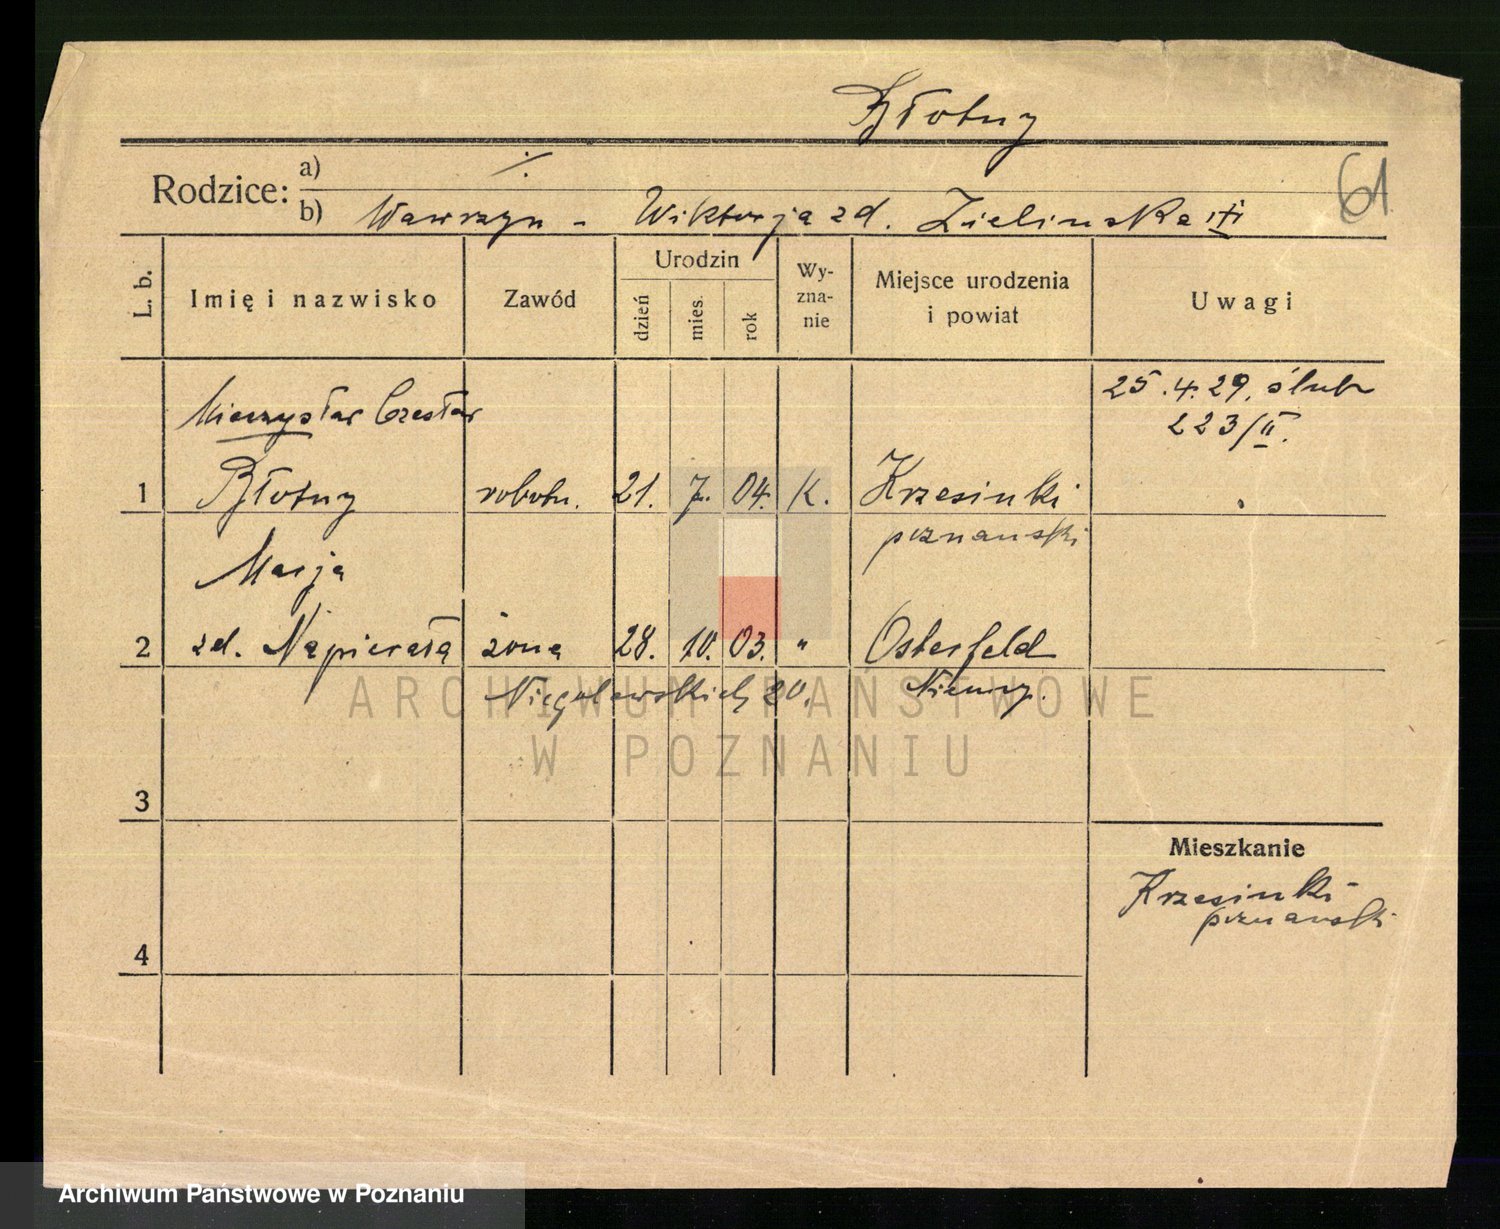 Błotny
Rodzice:
a) ·/·
b) Wawrzyn - Wiktorja zd. Zielinska
61
L. b.
Imię i nazwisko
Zawód
Urodzin
dzień
mies.
rok
Wy-
zna-
nie
Miejsce urodzenia
i powiat
Uwagi
Mieczysław Czesław
25.4.29. ślub
223/II.
1 Błotny robotn. 21. 7. 04. K. Krzesinki
poznanski
Marja
2 zd. Napierała żona 28. 10. 03. " Osterfeld
Niegolewskich 20. Niemcy.
ARCHIWUM PAŃSTWOWE
W POZNANIU
3
Mieszkanie
Krzesinki
poznanski
4
Archiwum Państwowe w Poznaniu